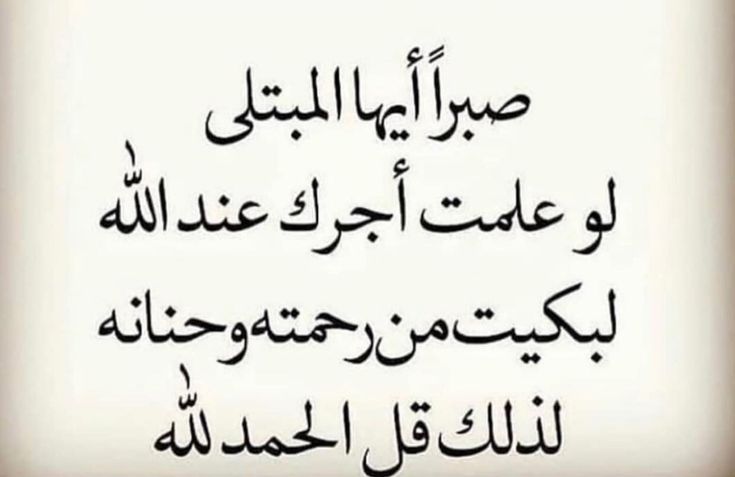 صبراً أيها المبتلى
لو علمت أجرك عند الله
لبكيت من رحمته وحنانه
لذلك قل الحمد لله